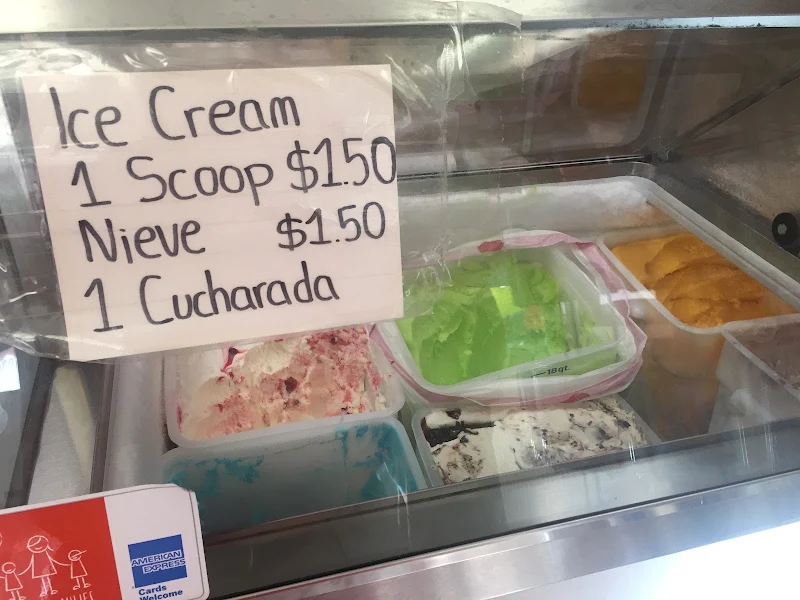 Ice Cream
1 Scoop $1.50
Nieve $1.50
1 Cucharada
18qt.
AMERICAN
EXPRESS
Cards
Welcome